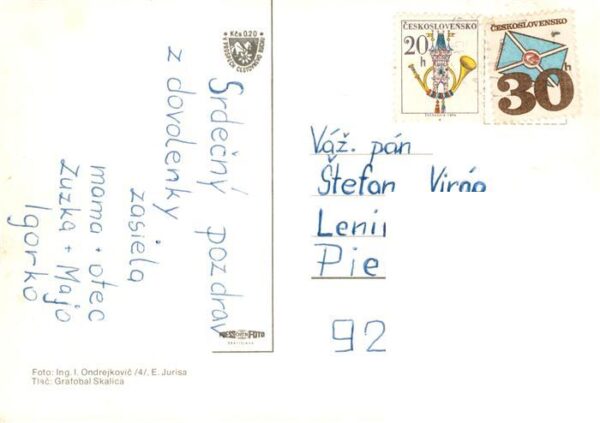 Kčs 0.20
V PROSPECH CESTOVNÉHO RUCHU
Srdečný pozdrav
z dovolenky
zasiela
mama + otec
Zuzka + Majo
Igorko
PRESSFOTO
BRATISLAVA
Foto: Ing. I. Ondrejkovič /4/, E. Jurisa
Tlač: Grafobal Skalica
ČESKOSLOVENSKO
20 h
ČESKOSLOVENSKO
30 h
Váž. pán
Štefan
Pie
92